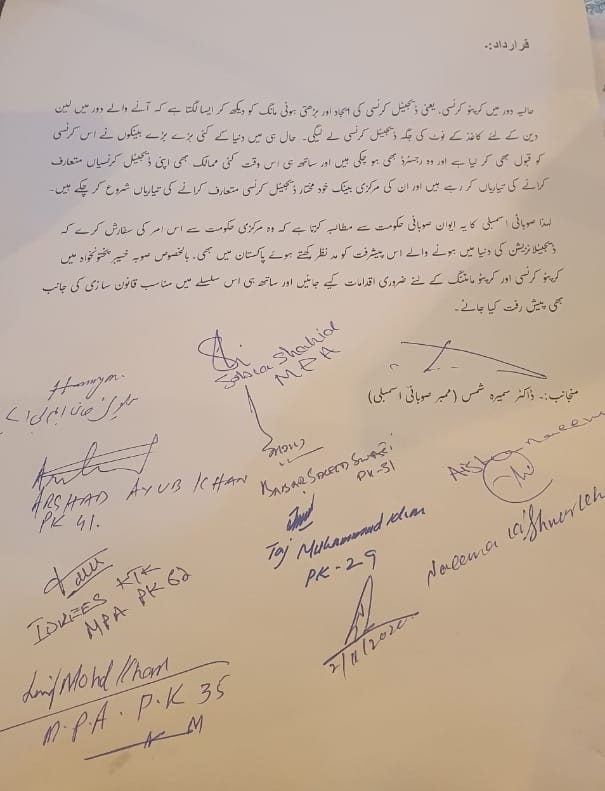 قرارداد:۔
حالیہ دور میں کرپٹو کرنسی، یعنی ڈیجیٹل کرنسی کی ایجاد اور بڑھتی ہوئی مانگ کو دیکھ کر ایسا لگتا ہے کہ آنے والے دور میں لین
دین کے لئے کاغذ کے نوٹ کی جگہ ڈیجیٹل کرنسی لے لیگی۔ حال ہی میں دنیا کے کئی بڑے بڑے بینکوں نے اس کرنسی
کو قبول بھی کر لیا ہے اور وہ رجسٹرڈ بھی ہو چکی ہیں اور ساتھ ہی اس وقت کئی ممالک بھی اپنی ڈیجیٹل کرنسیاں متعارف
کرانے کی تیاریاں کر رہے ہیں اور ان کی مرکزی بینک خود مختار ڈیجیٹل کرنسی متعارف کرانے کی تیاریاں شروع کر چکے ہیں۔
لہذا صوبائی اسمبلی کا یہ ایوان صوبائی حکومت سے مطالبہ کرتا ہے کہ وہ مرکزی حکومت سے اس امر کی سفارش کرے کہ
ڈیجیٹلائزیشن کی دنیا میں ہونے والے اس پیشرفت کو مد نظر رکھتے ہوے پاکستان میں بھی، بالخصوص صوبہ خیبر پختونخواہ میں
کرپٹو کرنسی اور کرپٹو مائننگ کے لئے ضروری اقدامات کیے جائیں اور ساتھ ہی اس سلسلے میں مناسب قانون سازی کی جانب
بھی پیش رفت کیا جائے۔
منجانب:۔ ڈاکٹر سمیرہ شمس (ممبر صوبائی اسمبلی)
Sobia Shahid
MPA
Humayun
ARSHAD AYUB KHAN
PK 41.
BABAR SALEEM SWATI
PK-31
Aisha naeem
Taj Muhammad Khan
PK-29
Naeema Kishwer
IDREES KTK
MPA PK 62
2/11/2020
Mohd Khan
M.P.A. P.K 35